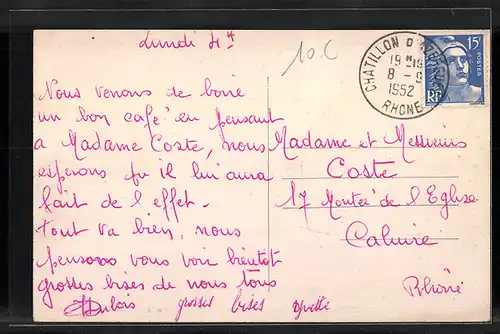 Lundi
10 C
CHATILLON D'AZERGUES
19H15
8 - 9
1952
RHONE
15F
POSTES
RF
Nous venons de boire
un bon café en pensant
a Madame Coste, nous
esperons qu'il lui aura
fait de l'effet.
tout va bien, nous
pensons vous voir bientôt
grosses bises de nous tous
Dubois grosses bises
Madame et Messieurs
Coste
17 Montée de l'Eglise
Caluire
Rhône